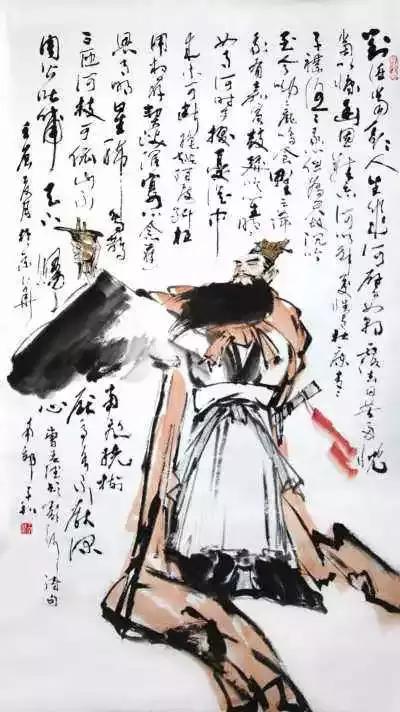 對酒當歌人生幾何譬如朝露去日苦多慨
當以慷幽思難忘何以解憂惟有杜康青青
子襟悠悠我心但為君故沉吟
至今呦呦鹿鳴食野之苹
我有嘉賓鼓瑟吹笙明明
如月何時可掇憂從中
來不可斷絕越陌度阡枉
用相存契闊談讌心念舊
恩月明星稀烏鵲
南飛繞樹
三匝何枝可依山不
厭高水不厭深
周公吐哺天下歸
心
曹孟德短歌行詩句
壬辰